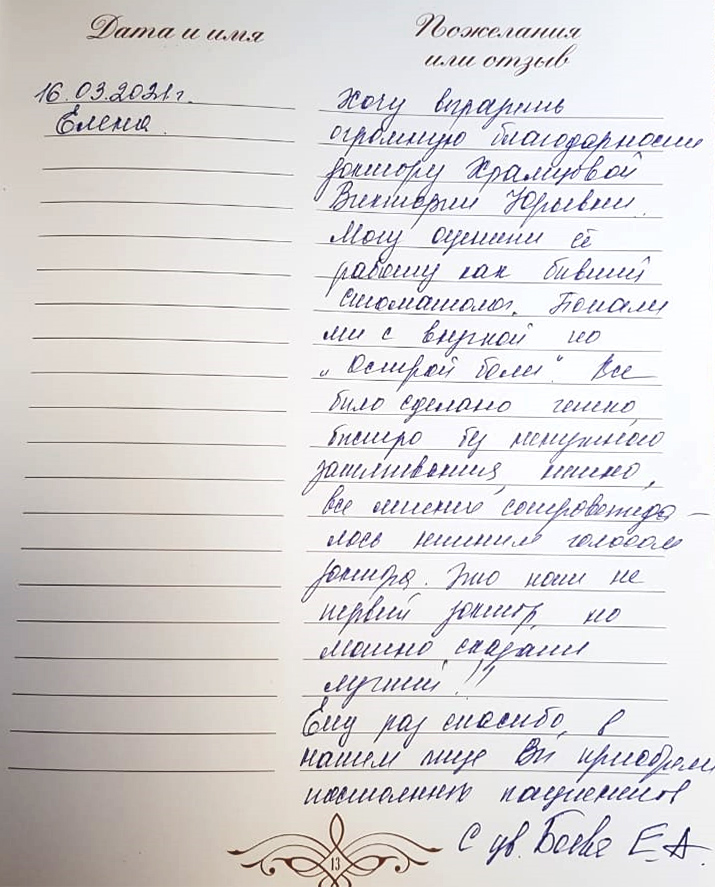 Дата и имя
Пожелания
или отзыв
16.03.2021г.
Елена
Хочу выразить
огромную благодарность
доктору Храмцовой
Виктории Юрьевне.
Могу оценить её
работу как бывший
стоматолог. Попали
мы с внучкой по
„Острой боли". Все
было сделано четко,
быстро без ненужного
затягивания, нежно,
все лечение сопровожда-
лось нежным голосом
доктора. Это наш не
первый доктор, но
можно сказать
лучший!!
Ещу раз спасибо, в
нашем лице Вы приобрели
постоянных пациентов
С ув. Боева Е.А.
13